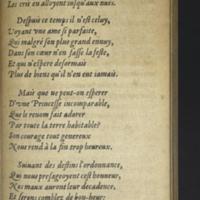 Les cris en alloyent iusqu'aux nues.
Depuis ce temps il n'est celuy,
Voyant vne ame si parfaite,
Qui malgré son plus grand ennuy,
Dans son cœur n'en fasse la feste,
Et qui n'espere desormais
Plus de biens qu'il n'en eut iamais.
Mais que ne peut-on esperer
D'vne Princesse incomparable,
Que le renom fait adorer
Par toute la terre habitable?
Son courage tout genereux
Nous rend à la fin trop heureux.
Suiuant des destins l'ordonnance,
Qui nous presageoyent cest honneur,
Nos maux auront leur decadence,
Et serons comblez de bon-heur: